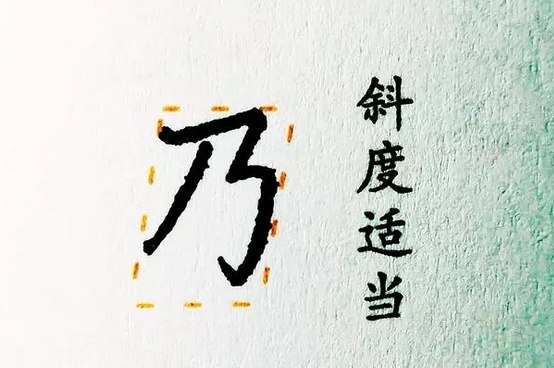 乃
斜度适当